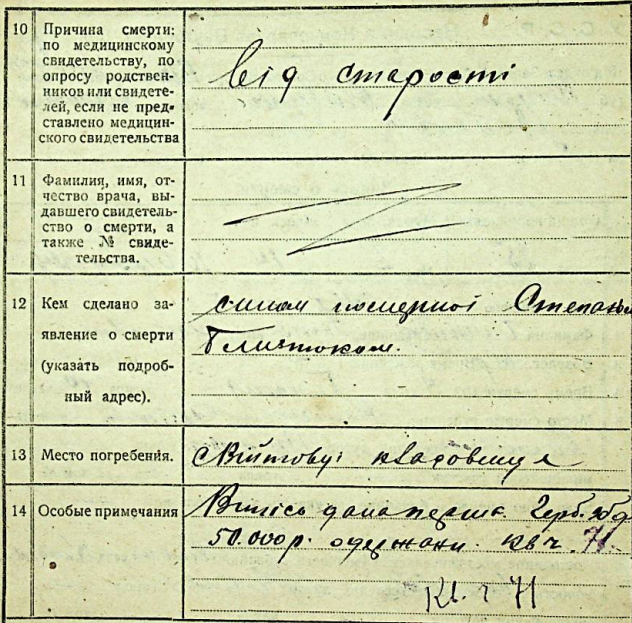 10 Причина смерти:
по медицинскому
свидетельству, по
опросу родствен-
ников или свидете-
лей, если не пред-
ставлено медицин-
ского свидетельства
від старості
11 Фамилия, имя, от-
чество врача, вы-
давшего свидетель-
ство о смерти, а
также № свиде-
тельства.
12 Кем сделано за-
явление о смерти
(указать подроб-
ный адрес).
сином помершої Степаном
13 Место погребения.
кладовище
14 Особые примечания
Випись дана перша Герб. зб.
50.000р. одержани кв ч. 71.
Кв. ч 71